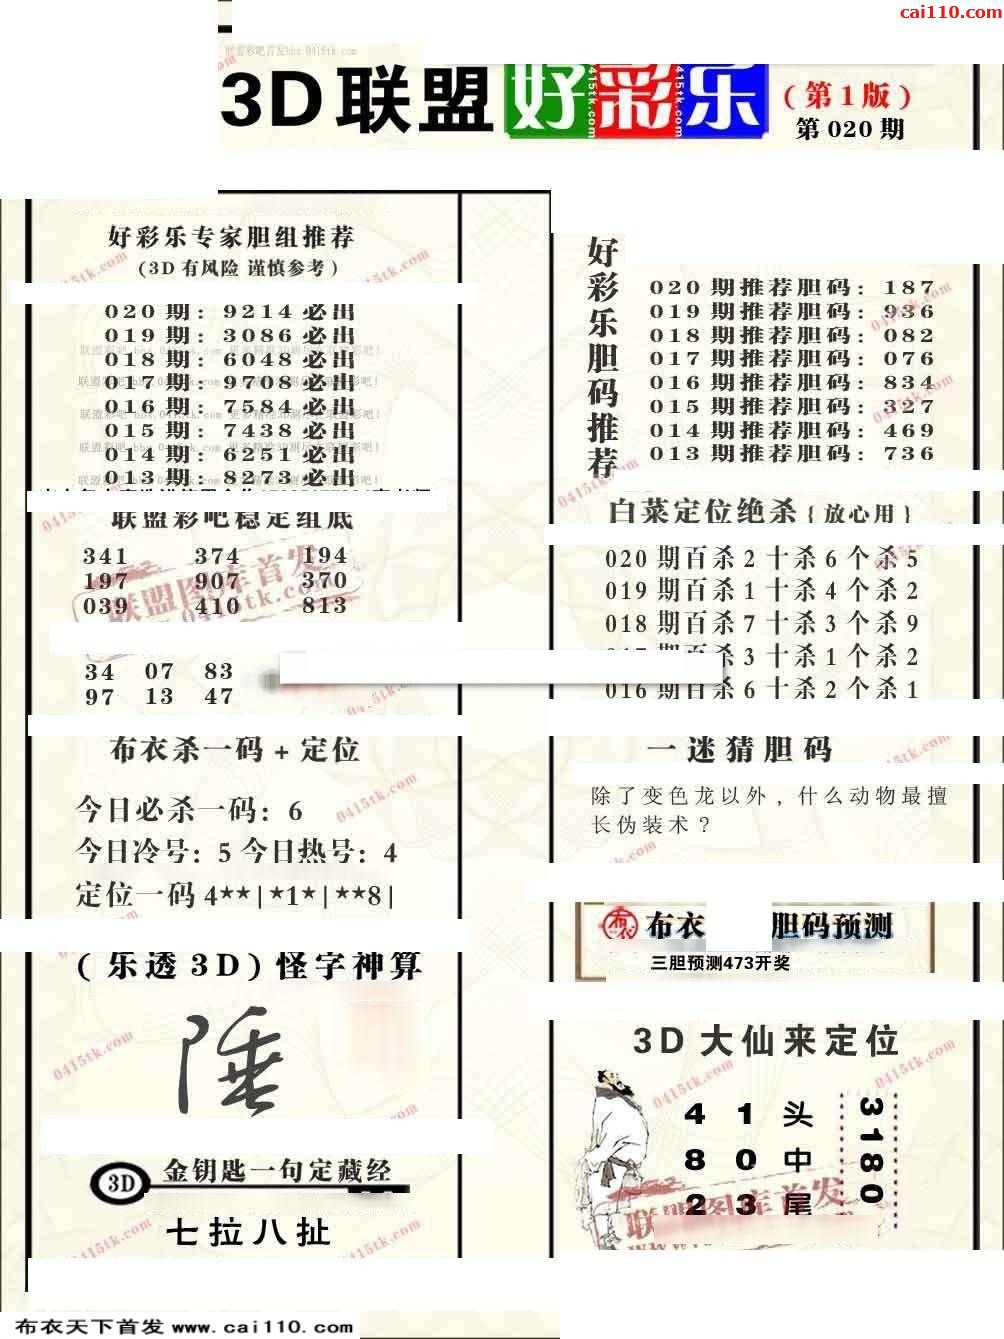 cai110.com
3D联盟好彩乐
(第1版)
第020期
好彩乐专家胆组推荐
(3D有风险 谨慎参考)
020期: 9214必出
019期: 3086必出
018期: 6048必出
017期: 9708必出
016期: 7584必出
015期: 7438必出
014期: 6251必出
013期: 8273必出
联盟彩吧稳定组底
341 374 194
197 907 370
039 410 813
34 07 83
97 13 47
布衣杀一码+定位
今日必杀一码: 6
今日冷号: 5 今日热号: 4
定位一码4**|*1*|**8|
(乐透3D)怪字神算
陲
3D 金钥匙一句定藏经
七拉八扯
好彩乐胆码推荐
020期推荐胆码: 187
019期推荐胆码: 936
018期推荐胆码: 082
017期推荐胆码: 076
016期推荐胆码: 834
015期推荐胆码: 327
014期推荐胆码: 469
013期推荐胆码: 736
白菜定位绝杀{放心用}
020期百杀2十杀6个杀5
019期百杀1十杀4个杀2
018期百杀7十杀3个杀9
017期百杀3十杀1个杀2
016期百杀6十杀2个杀1
一迷猜胆码
除了变色龙以外，什么动物最擅
长伪装术？
布衣 胆码预测
三胆预测473开奖
3D大仙来定位
4 1头
8 0中
2 3尾
3180
联盟图库首发
0415tk.com
布衣天下首发 www.cai110.com